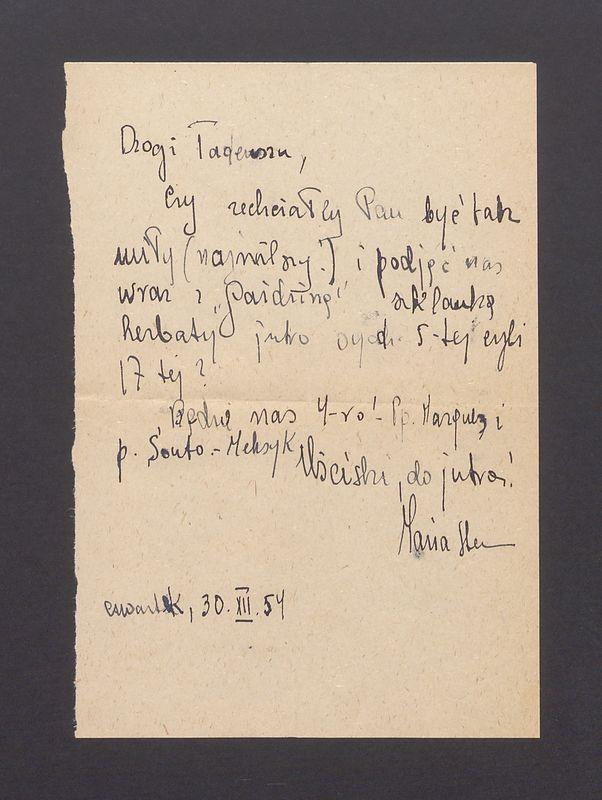 Drogi Tadeuszu,
Czy zechciałby Pan być tak
miły (najmilszy!) i podjąć nas
wraz z „Paidziną" szklanką
herbaty jutro o godz. 5-tej czyli
17 tej?
Będzie nas 4-ro! - Pp. Marquez i
p. Souto. - Meksyk
Uściski, do jutra!
Maria
czwartek, 30. XII. 54